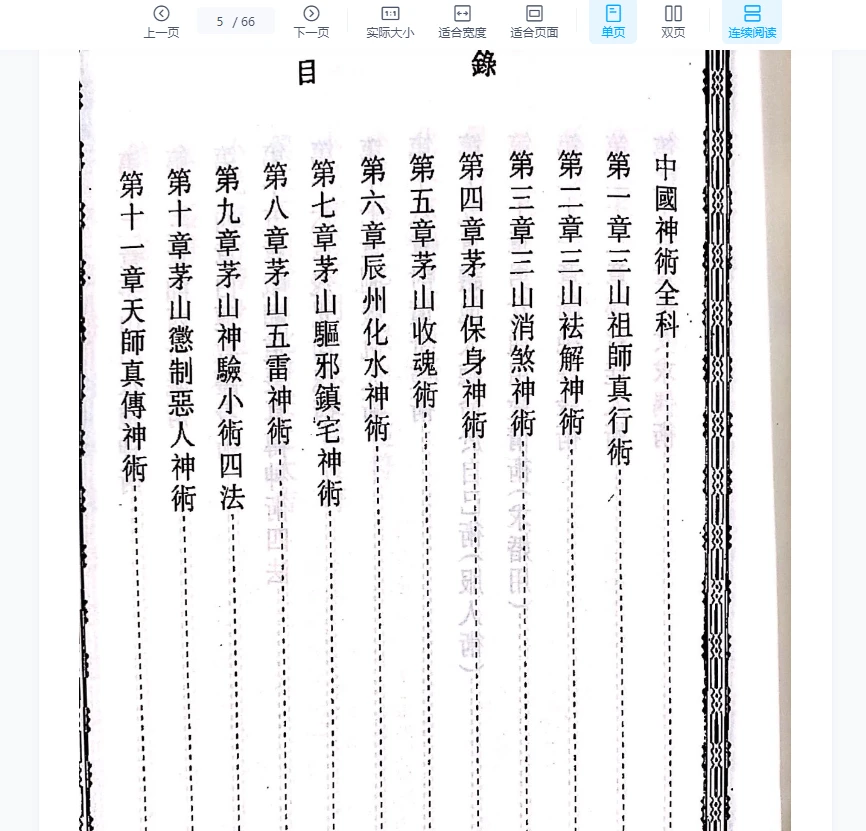 上一页
5 / 66
下一页
1:1
实际大小
适合宽度
适合页面
单页
双页
连续阅读
目錄
中國神術全科
第一章三山祖師真行術
第二章三山袪解神術
第三章三山消煞神術
第四章茅山保身神術
第五章茅山收魂術
第六章辰州化水神術
第七章茅山驅邪鎮宅神術
第八章茅山五雷神術
第九章茅山神驗小術四法
第十章茅山懲制惡人神術
第十一章天師真傳神術